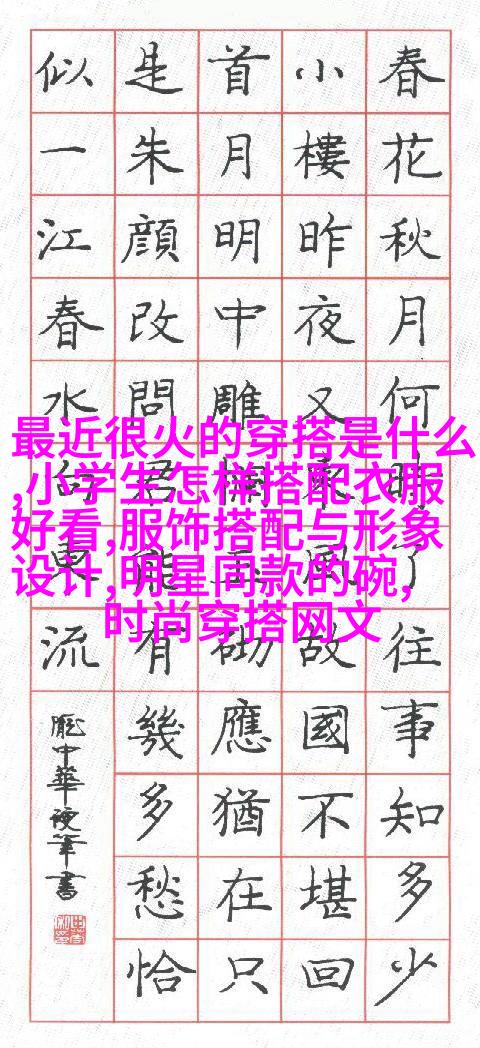 春花秋月何時了往事知多少
小樓昨夜又東風故國不堪回
首月明中雕欄玉砌應猶在只
是朱顔改問君能有幾多愁恰
似一江春水向東流
龐中華硬筆書
最近很火的穿搭是什么
,小学生怎样搭配衣服
好看,服饰搭配与形象
设计,明星同款的碗,
时尚穿搭网文